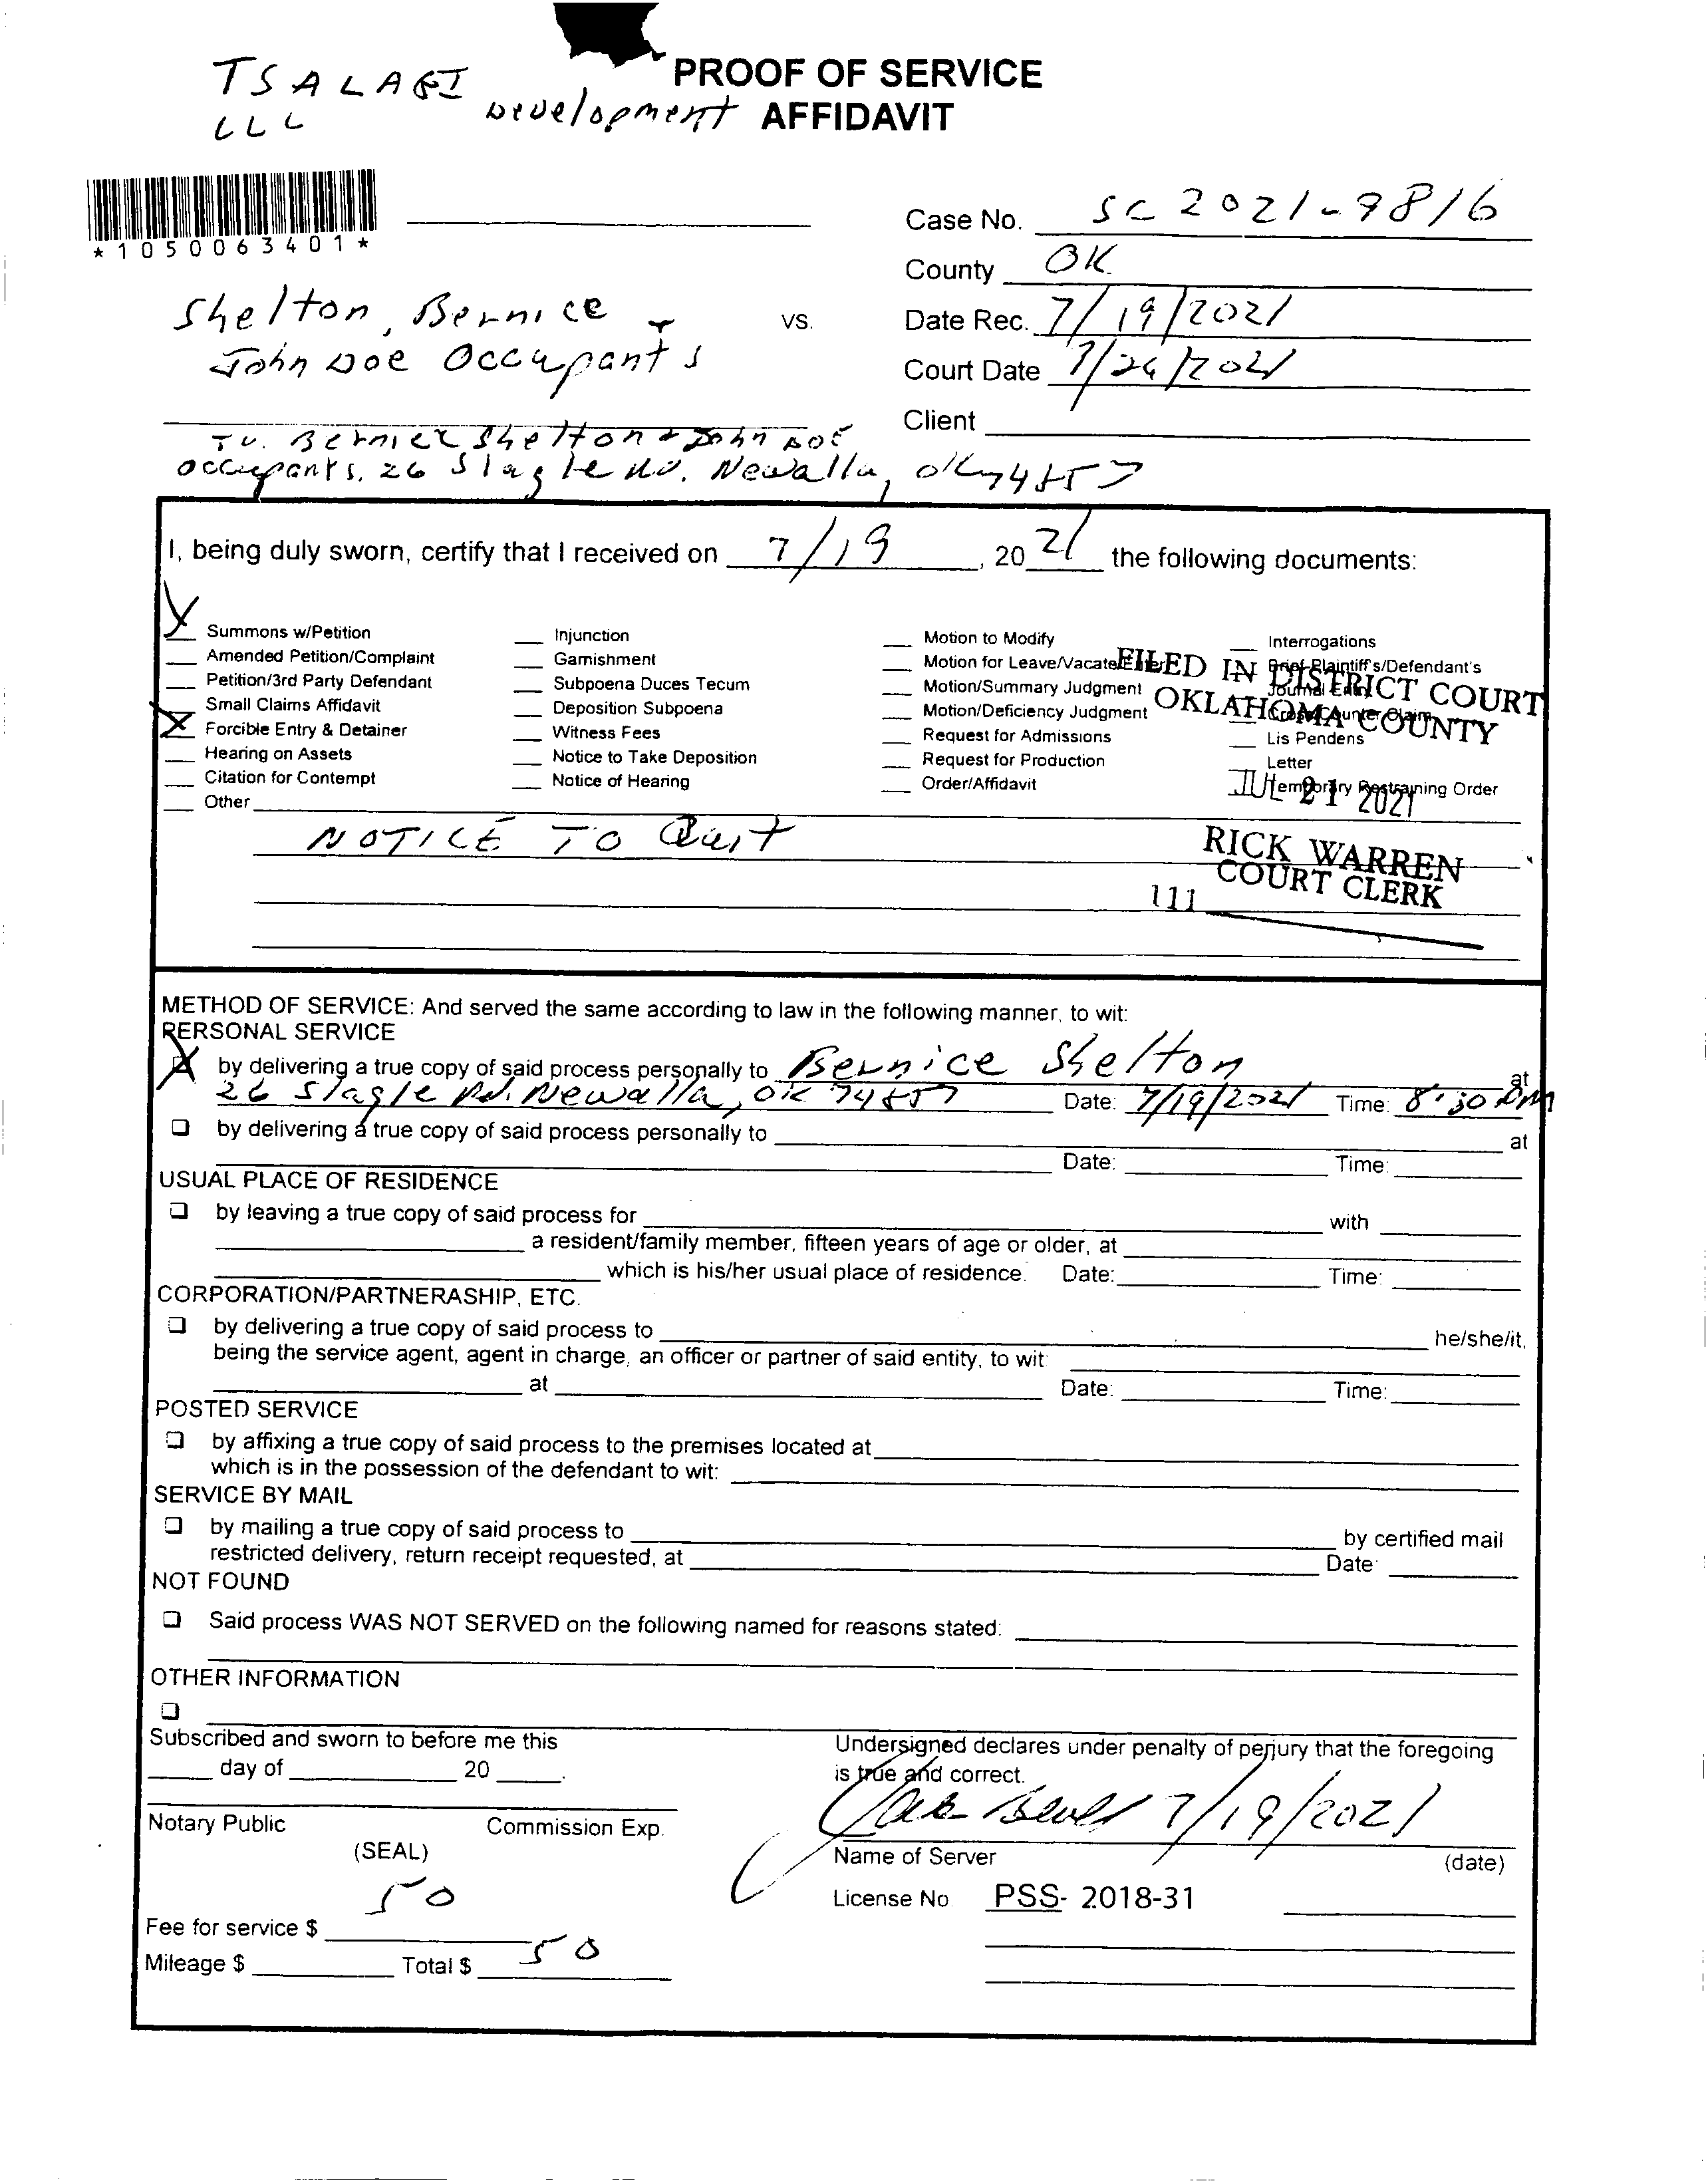 PROOF OF SERVICE
AFFIDAVIT
TSALAGI Development
LLC
*1050063401*
Case No. SC 2021-9816
County OK
Shelton, Bernice +
John Doe Occupants
vs.
Date Rec. 7/19/2021
Court Date 7/26/2021
Client
To. Bernice Shelton + John Doe
occupants, 26 Slagle Rd. Newalla, OK 74857
I, being duly sworn, certify that I received on 7/19, 2021 the following documents:
X Summons w/Petition
Amended Petition/Complaint
Petition/3rd Party Defendant
Small Claims Affidavit
X Forcible Entry & Detainer
Hearing on Assets
Citation for Contempt
Other
Injunction
Garnishment
Subpoena Duces Tecum
Deposition Subpoena
Witness Fees
Notice to Take Deposition
Notice of Hearing
Motion to Modify
Motion for Leave/Vacate/Enter
Motion/Summary Judgment
Motion/Deficiency Judgment
Request for Admissions
Request for Production
Order/Affidavit
Interrogations
Brief Plaintiff's/Defendant's
Journal Entry
Cross/Counter Claim
Lis Pendens
Letter
Temporary Restraining Order
FILED IN DISTRICT COURT
OKLAHOMA COUNTY
JUL 21 2021
RICK WARREN
COURT CLERK
111
NOTICE TO Quit
METHOD OF SERVICE: And served the same according to law in the following manner, to wit:
PERSONAL SERVICE
X by delivering a true copy of said process personally to Bernice Shelton at
26 Slagle Rd. Newalla, OK 74857 Date: 7/19/2021 Time: 8:30 PM
by delivering a true copy of said process personally to at
Date: Time:
USUAL PLACE OF RESIDENCE
by leaving a true copy of said process for with
a resident/family member, fifteen years of age or older, at
which is his/her usual place of residence. Date: Time:
CORPORATION/PARTNERASHIP, ETC.
by delivering a true copy of said process to he/she/it,
being the service agent, agent in charge, an officer or partner of said entity, to wit:
at Date: Time:
POSTED SERVICE
by affixing a true copy of said process to the premises located at
which is in the possession of the defendant to wit:
SERVICE BY MAIL
by mailing a true copy of said process to by certified mail
restricted delivery, return receipt requested, at Date
NOT FOUND
Said process WAS NOT SERVED on the following named for reasons stated:
OTHER INFORMATION
Subscribed and sworn to before me this
day of 20 .
Notary Public Commission Exp.
(SEAL)
Fee for service $ 50
Mileage $ Total $ 50
Undersigned declares under penalty of perjury that the foregoing
is true and correct.
7/19/2021
Name of Server (date)
License No. PSS- 2018-31